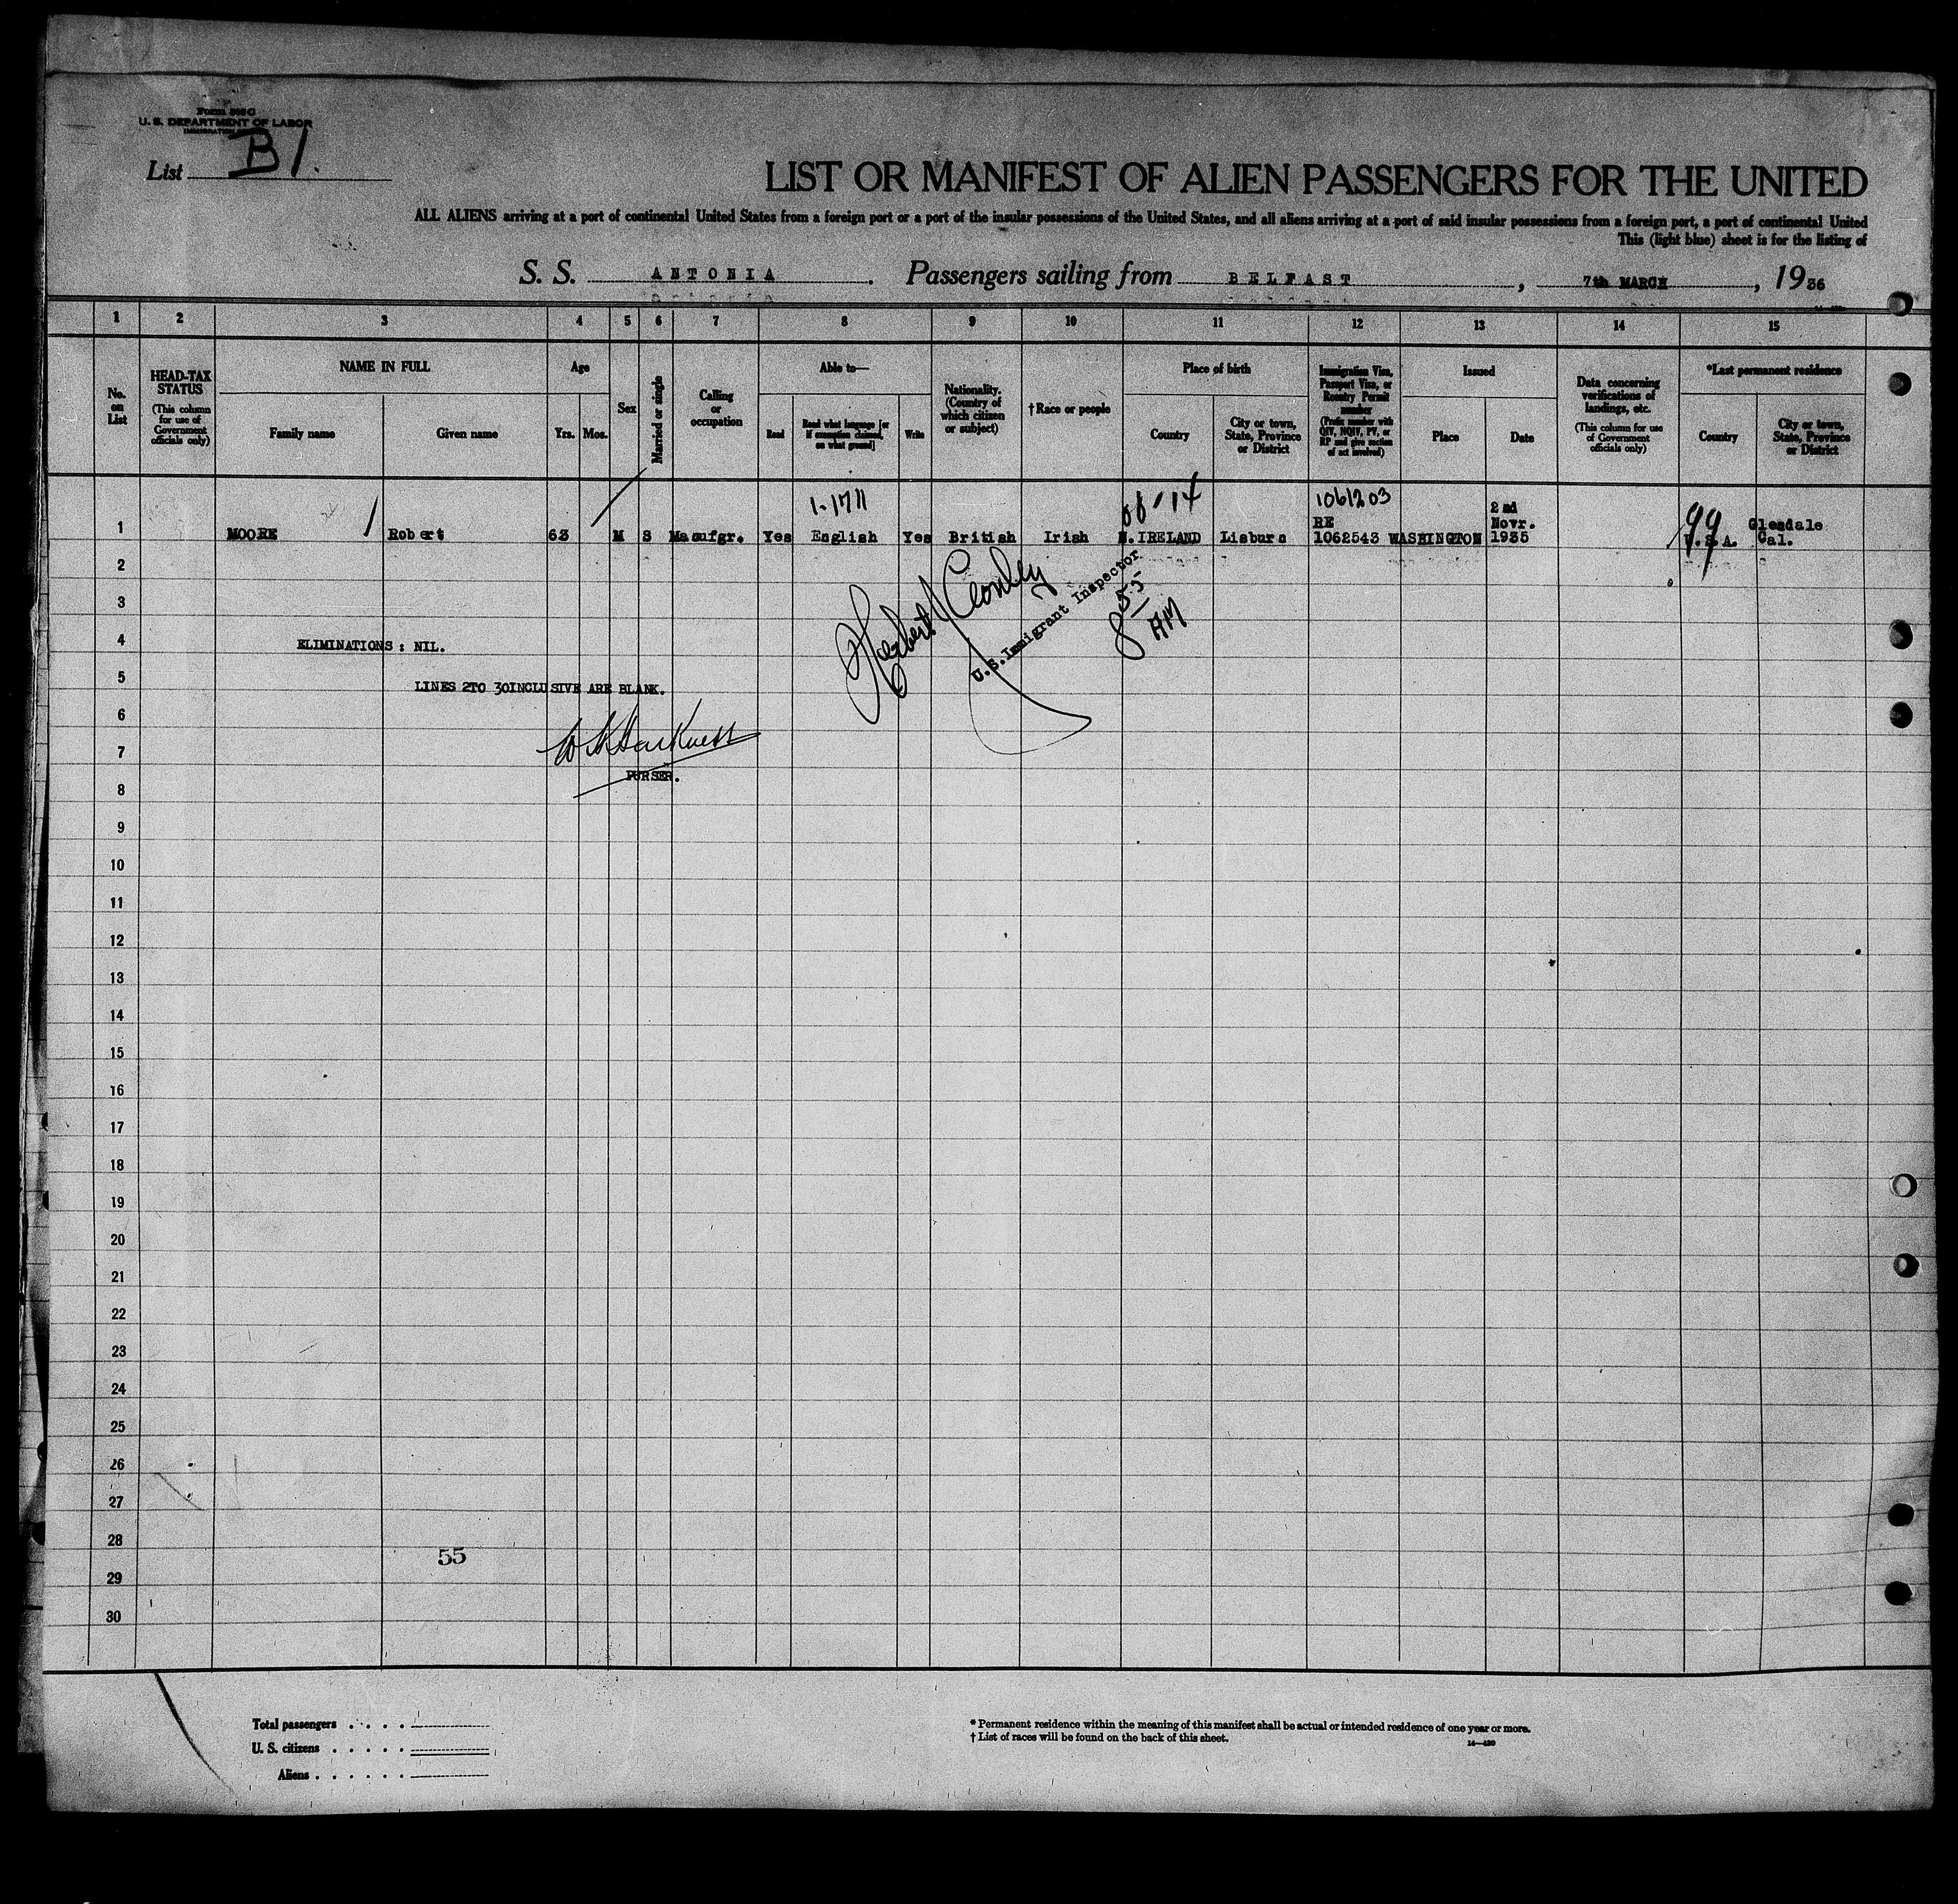 Form 500 C
U. S. DEPARTMENT OF LABOR
IMMIGRATION
List B1.
LIST OR MANIFEST OF ALIEN PASSENGERS FOR THE UNITED
ALL ALIENS arriving at a port of continental United States from a foreign port or a port of the insular possessions of the United States, and all aliens arriving at a port of said insular possessions from a foreign port, a port of continental United
This (light blue) sheet is for the listing of
S. S. ANTONIA. Passengers sailing from BELFAST, 7th MARCH, 1936
1 2 3 4 5 6 7 8 9 10 11 12 13 14 15
No. on List
HEAD-TAX STATUS (This column for use of Government officials only)
NAME IN FULL
Family name Given name
Age
Yrs. Mos.
Sex
Married or single
Calling or occupation
Able to—
Read Read what language [or if exemption claimed, on what ground] Write
Nationality. (Country of which citizen or subject)
†Race or people
Place of birth
Country City or town, State, Province or District
Immigration Visa, Passport Visa, or Reentry Permit number (Prefix number with QIV, NQIV, PV, or RP and give section of act involved)
Issued
Place Date
Data concerning verifications of landings, etc. (This column for use of Government officials only)
*Last permanent residence
Country City or town, State, Province or District
1-1711 1061203
1 MOORE Robert 63 M S Manufgr. Yes English Yes British Irish N. IRELAND Lisburn RE 1062543 WASHINGTON 2nd Novr. 1935 99 U.S.A. Glendale Cal.
2
3
U.S. Immigrant Inspector
8 55 AM
4 ELIMINATIONS: NIL.
5 LINES 2TO 30INCLUSIVE ARE BLANK.
6
7
PURSER.
8
9
10
11
12
13
14
15
16
17
18
19
20
21
22
23
24
25
26
27
28
55
29
30
Total passengers
U. S. citizens
Aliens
* Permanent residence within the meaning of this manifest shall be actual or intended residence of one year or more.
† List of races will be found on the back of this sheet.
14—430